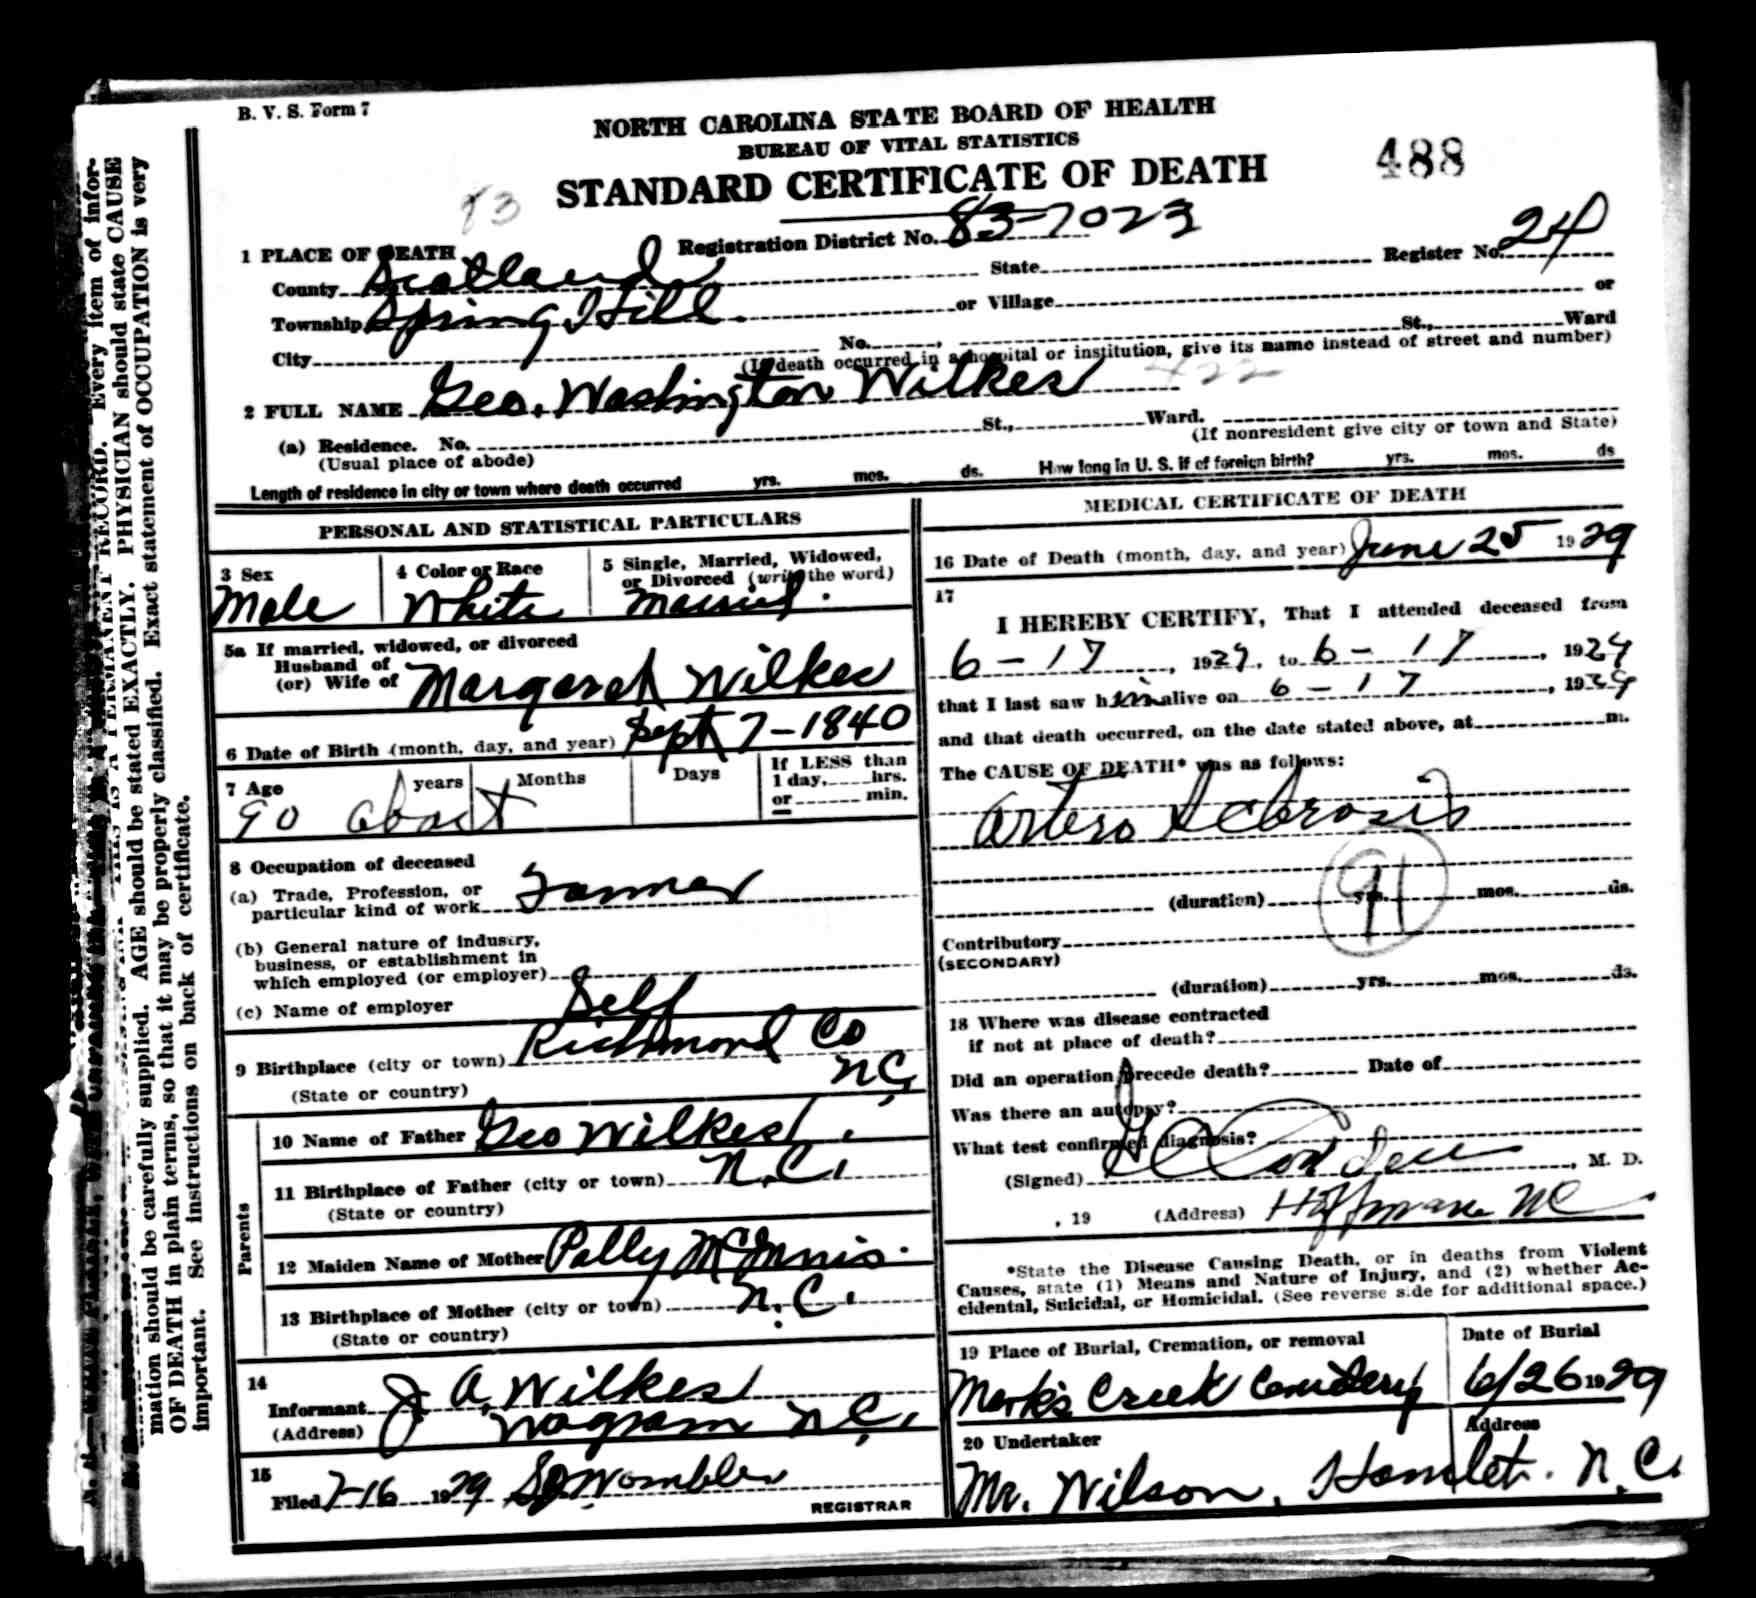 B. V. S. Form 7
NORTH CAROLINA STATE BOARD OF HEALTH
BUREAU OF VITAL STATISTICS
STANDARD CERTIFICATE OF DEATH
488
83
Registration District No. 83-7023
Register No. 24
1 PLACE OF DEATH
County Scotland State
Township Spring Hill. or Village or
City No. , St., Ward
(If death occurred in a hospital or institution, give its name instead of street and number)
2 FULL NAME Geo. Washington Wilkes 422
(a) Residence. No. St., Ward.
(Usual place of abode) (If nonresident give city or town and State)
Length of residence in city or town where death occurred yrs. mos. ds. How long in U. S. if of foreign birth? yrs. mos. ds
PERSONAL AND STATISTICAL PARTICULARS
3 Sex
Male
4 Color or Race
White
5 Single, Married, Widowed,
or Divorced (write the word)
Married.
5a If married, widowed, or divorced
Husband of
(or) Wife of Margaret Wilkes
6 Date of Birth (month, day, and year) Sept 7-1840
7 Age years Months Days If LESS than
1 day, hrs.
or min.
90 about
8 Occupation of deceased
(a) Trade, Profession, or
particular kind of work Farmer
(b) General nature of industry,
business, or establishment in
which employed (or employer)
(c) Name of employer Self
9 Birthplace (city or town) Richmond Co
(State or country) N.C.
Parents
10 Name of Father Geo Wilkes.
11 Birthplace of Father (city or town) N.C.
(State or country)
12 Maiden Name of Mother Polly McInnis.
13 Birthplace of Mother (city or town) N.C.
(State or country)
14
Informant J. A. Wilkes
(Address) Wagram N.C.
15
Filed 7-16 1929 Womble
REGISTRAR
MEDICAL CERTIFICATE OF DEATH
16 Date of Death (month, day, and year) June 25 1929
17
I HEREBY CERTIFY, That I attended deceased from
6-17, 1929, to 6-17, 1929
that I last saw him alive on 6-17, 1929
and that death occurred, on the date stated above, at m.
The CAUSE OF DEATH* was as follows:
Artero Sclerosis
91
(duration) yrs. mos. ds.
Contributory
(SECONDARY)
(duration) yrs. mos. ds.
18 Where was disease contracted
if not at place of death?
Did an operation precede death? Date of
Was there an autopsy?
What test confirmed diagnosis?
(Signed) , M. D.
, 19 (Address) Hoffman NC
*State the Disease Causing Death, or in deaths from Violent
Causes, state (1) Means and Nature of Injury, and (2) whether Ac-
cidental, Suicidal, or Homicidal. (See reverse side for additional space.)
19 Place of Burial, Cremation, or removal
Marks Creek Cemetery
Date of Burial
6/26 1929
20 Undertaker
Mr. Wilson,
Address
Hamlet. N.C.
mation should be carefully supplied. AGE should be stated EXACTLY. PHYSICIAN should state CAUSE
OF DEATH in plain terms, so that it may be properly classified. Exact statement of OCCUPATION is very
important. See instructions on back of certificate.